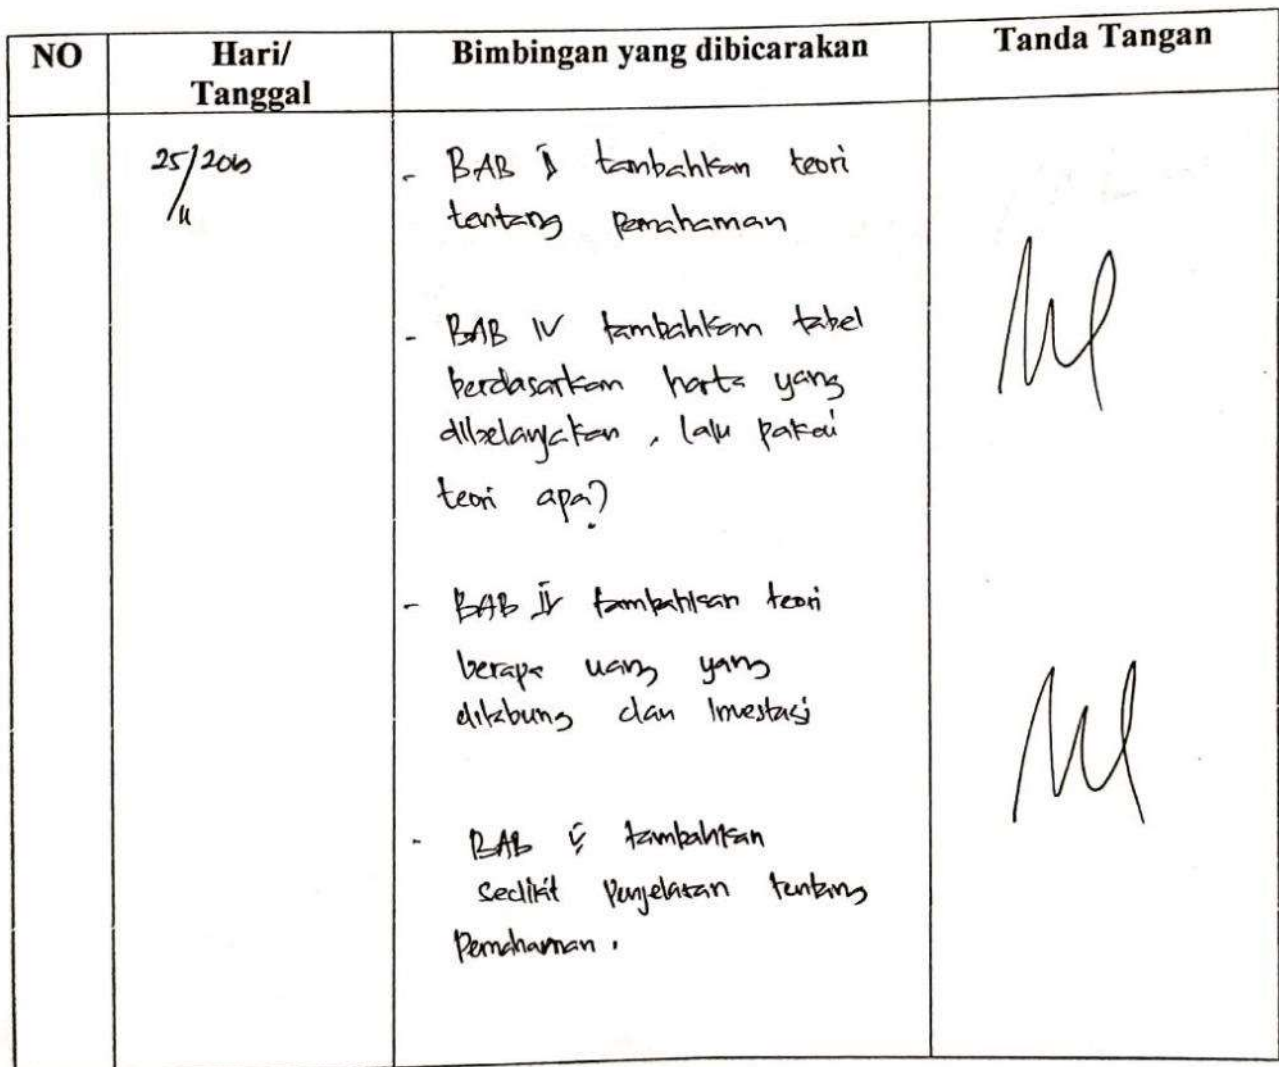 NO Hari/ Tanggal Bimbingan yang dibicarakan Tanda Tangan
25/
- BAB tambahkan teori
tentang pemahaman
- BAB IV tambahkan tabel
berdasarkan harta yang
dibelanjakan, lalu pakai
teori apa?
- BAB IV tambahkan teori
berapa uang yang
ditabung dan Investasi
- BAB tambahkan
sedikit Penjelasan tentang
Pemahaman.